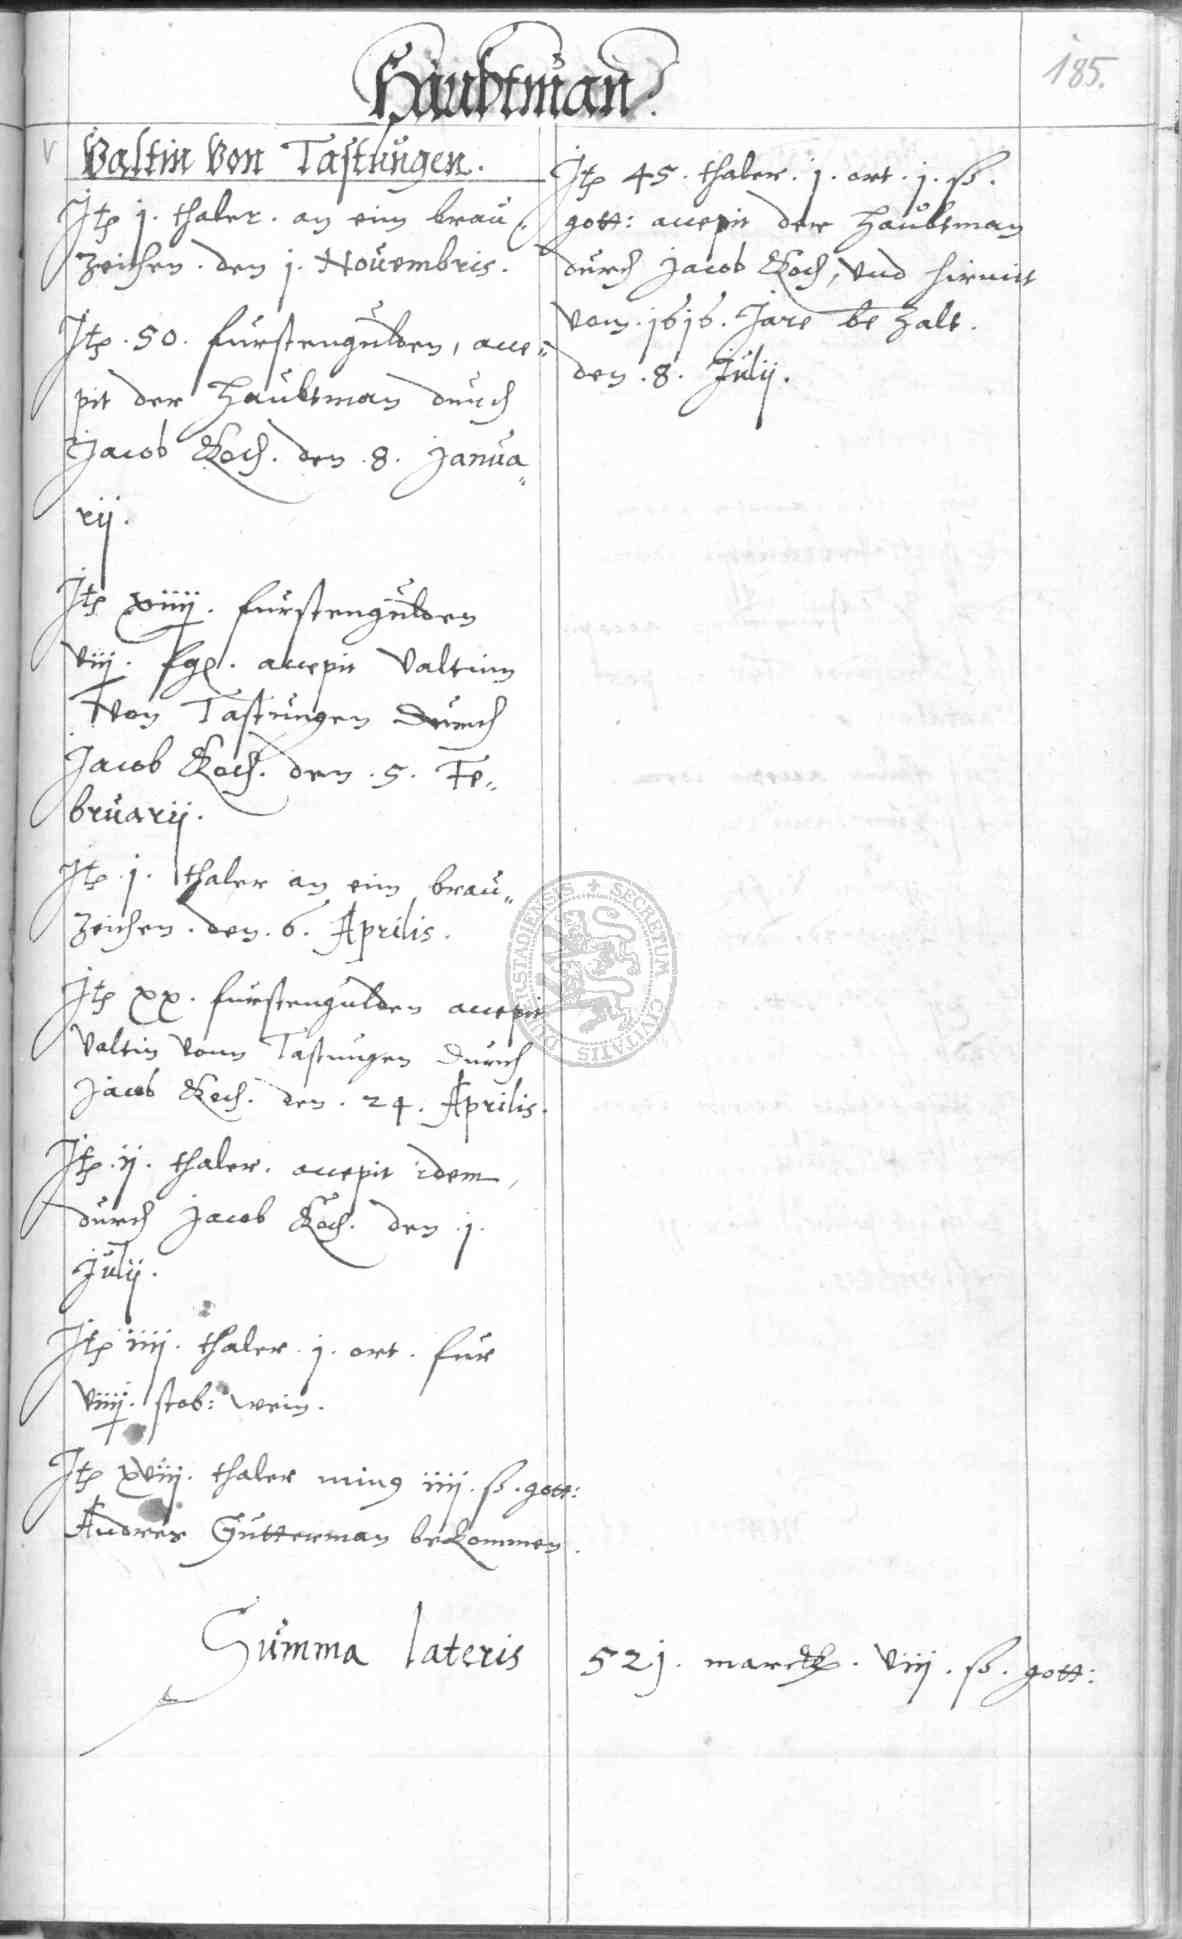 185.
Haubtman.
V
Valtin Von Tastungen.
Itp j. thaler. an eim brau„
Zeichen. den j. Novembris.
Itp. 50. furstengulden, acce„
pit der Haubtman durch
Jacob Koch. den .8. Janua„
rij.
Itp xiiij. furstengulden
viij. sgl. accepit Valtinn
Von Tastungen durch
Jacob Koch. den .5. Fe„
bruarij.
Itp .j. thaler an eim brau„
Zeichen. den. 6. Aprilis.
Itp xx. furstengulden accepit
Valtin vonn Tastungen durch
Jacob Koch. den. 24. Aprilis.
Itp .ij. thaler. accepit idem,
durch Jacob Koch. den .j.
Julij.
Itp iiij. thaler .j. ort. fur
viiij. stob: wein.
Itp xviij. thaler min9 iiij. ß. gott:
Andres Gutterman bekommen.
Itp 45. thaler. j. ort. j. ß.
gott: accepit der Haubtman
durch Jacob Koch, und hirmit
vom. j6j6. Jare bezalt.
den .8. Julij.
Summa lateris 52j. marck. viij. ß. gott:
DUDERSTADIENSIS + SECRETUM CIVITATIS